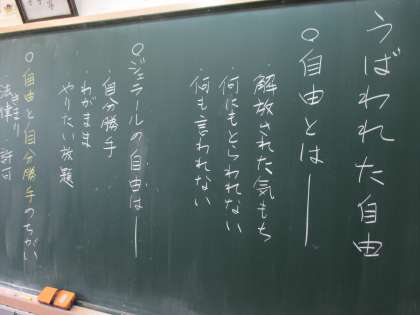 うばわれた自由
○自由とは――
解放された気もち
何にもとらわれない
何も言われない
○ジェラールの自由は―
・自分勝手
・わがまま
・やりたい放題
○自由と自分勝手のちがい
きまり
法律 許可